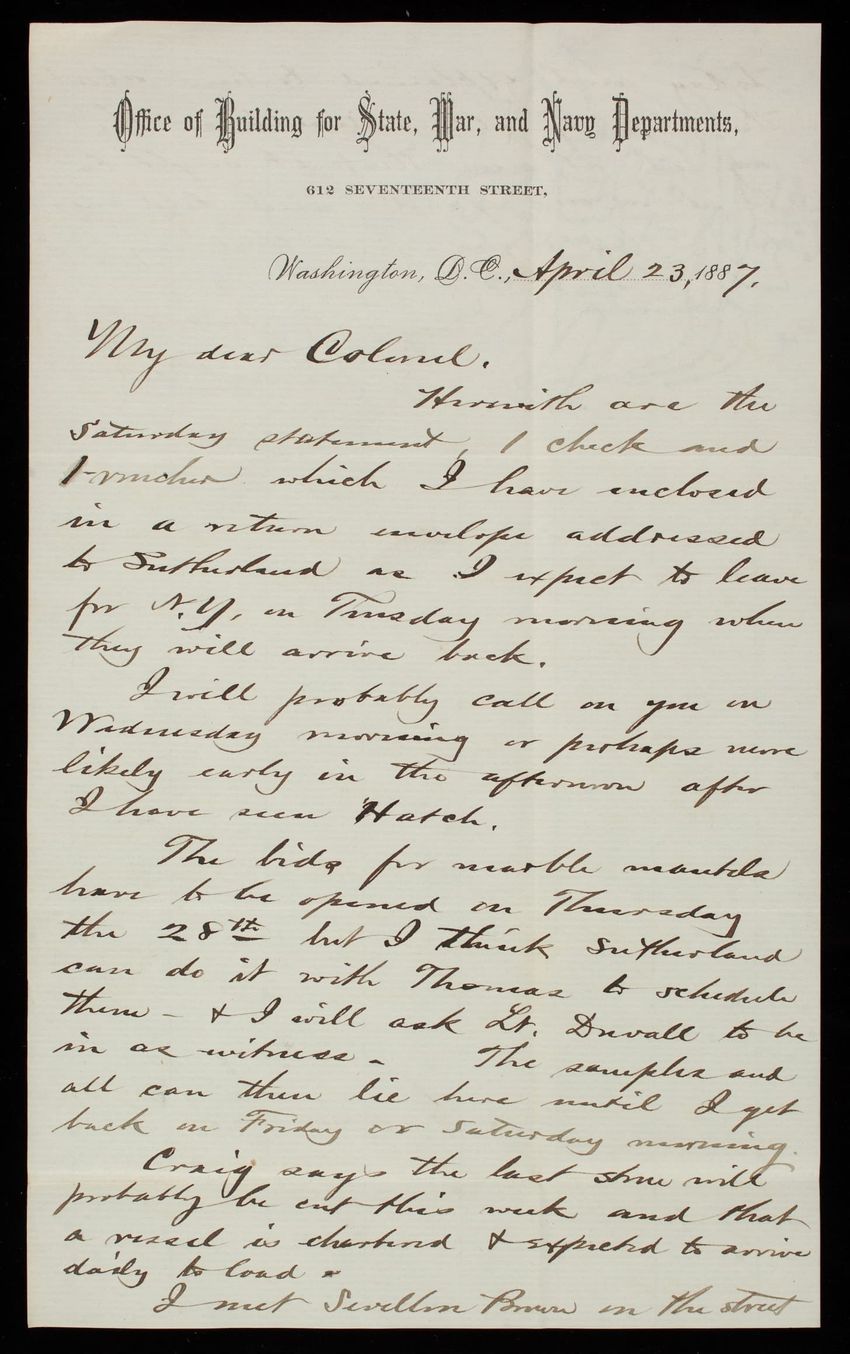 Office of Building for State, War, and Navy Departments,
612 SEVENTEENTH STREET,
Washington, D.C., April 23, 1887.
My dear Colonel.
Herewith are the
Saturday statement, 1 check and
1 voucher which I have enclosed
in a return envelope addressed
to Sutherland as I expect to leave
for N.Y. on Tuesday morning when
they will arrive back.
I will probably call on you on
Wednesday morning or perhaps more
likely early in the afternoon after
I have seen Hatch.
The bids for marble mantels
have to be opened on Thursday
the 28th but I think Sutherland
can do it with Thomas to schedule
them - & I will ask Lt. Duvall to be
in as witness - The samples and
all can then lie here until I get
back on Friday or Saturday morning.
Craig says the last stone will
probably be cut this week and that
a vessel is chartered & expected to arrive
daily to load -
I met Sevellon Brown on the street